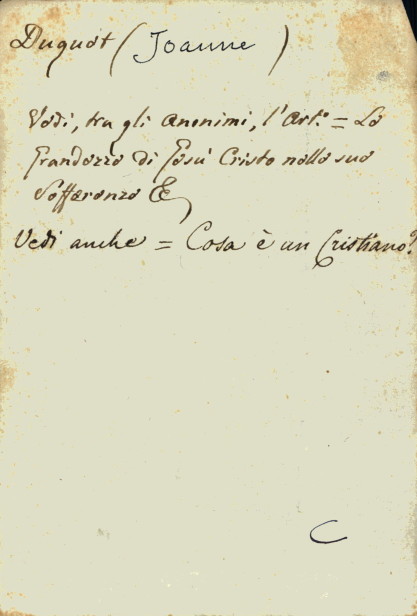 Duguet (Joanne)
Vedi, tra gli anonimi, l'Art.° = La
Grandezza di Gesù Cristo nelle sue
Sofferenze &,
Vedi anche = Cosa è un Cristiano?
C